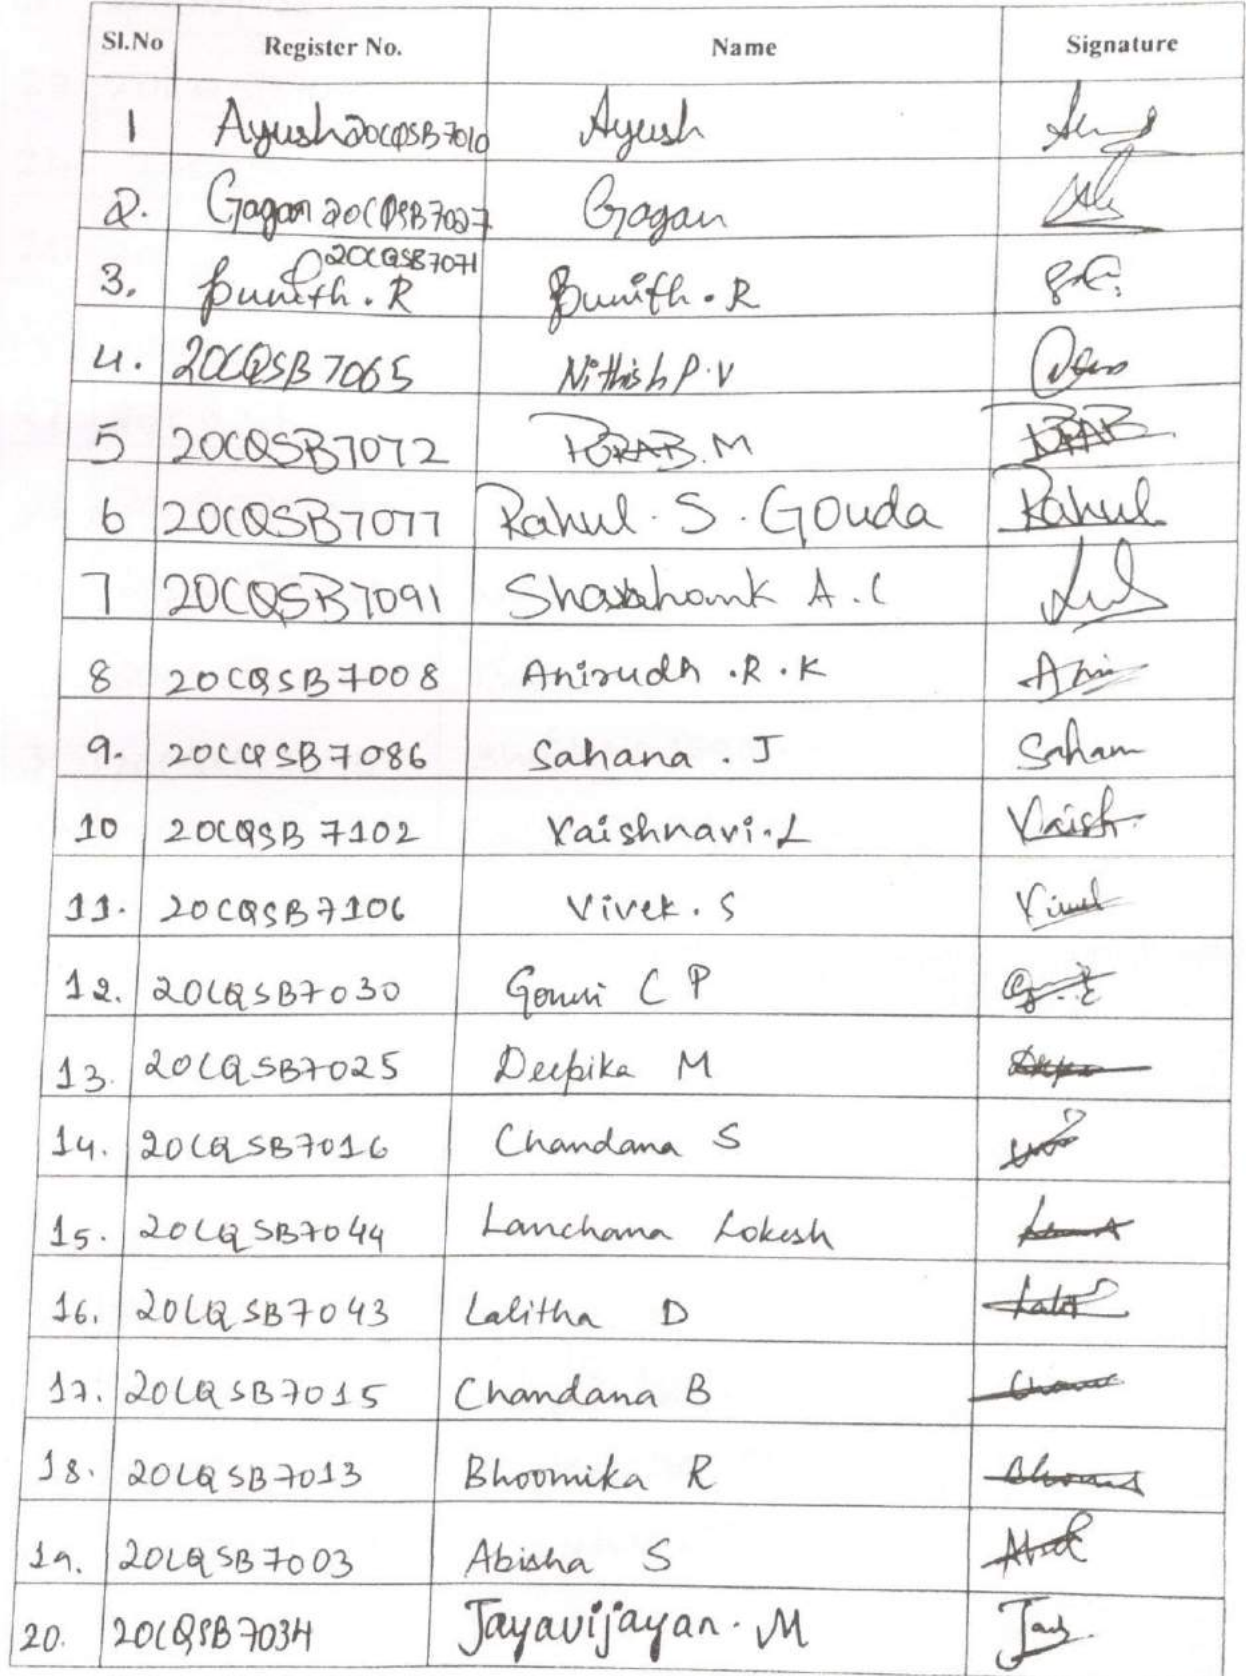 Sl.No Register No. Name Signature
1 Ayush 20CQSB7010 Ayush
2. Gagan 20CQSB7027 Gagan
20CQSB7071
3. Punith.R Punith.R
4. 20CQSB7065 Nithish P.V
5 20CQSB7072 M
6 20CQSB7077 Rahul.S.Gouda Rahul
7 20CQSB7091 A.C
8 20CQSB7008 Anirudh.R.K Ani
9. 20CQSB7086 Sahana.J Sahan
10 20CQSB7102 Vaishnavi.L Vaish
11. 20CQSB7106 Vivek.S
12. 20CQSB7030 Gowri C P
13. 20CQSB7025 Deepika M
14. 20CQSB7016 Chandana S
15. 20CQSB7044 Lanchana Lokesh
16. 20CQSB7043 Lalitha D
17. 20CQSB7015 Chandana B
18. 20CQSB7013 Bhoomika R
19. 20CQSB7003 Abisha S
20. 20CQSB7034 Jayavijayan.M